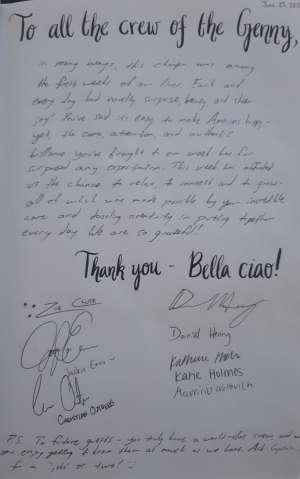 June 23, 20
To all the crew of the Genny,
in many ways, this charter was among
the finest weeks of our lives. Each and
every day had novelty, surprise, beauty and sheer
joy! You've said it's easy to make Americans happy -
yet, the care, attention, and authentic
brilliance you've brought to our week has far
surpassed any expectation. This week has afforded
us the chance to relax, to connect and to grow -
all of which was made possible by your incredible
care and dazzling creativity in putting together
every day. We are so grateful!
Thank you - Bella ciao!
Daniel Henry
Katie Holmes
P.S. To future guests - you truly have a world-class crew and
enjoy getting to know them as much as we have. Ask
for a joke or two!